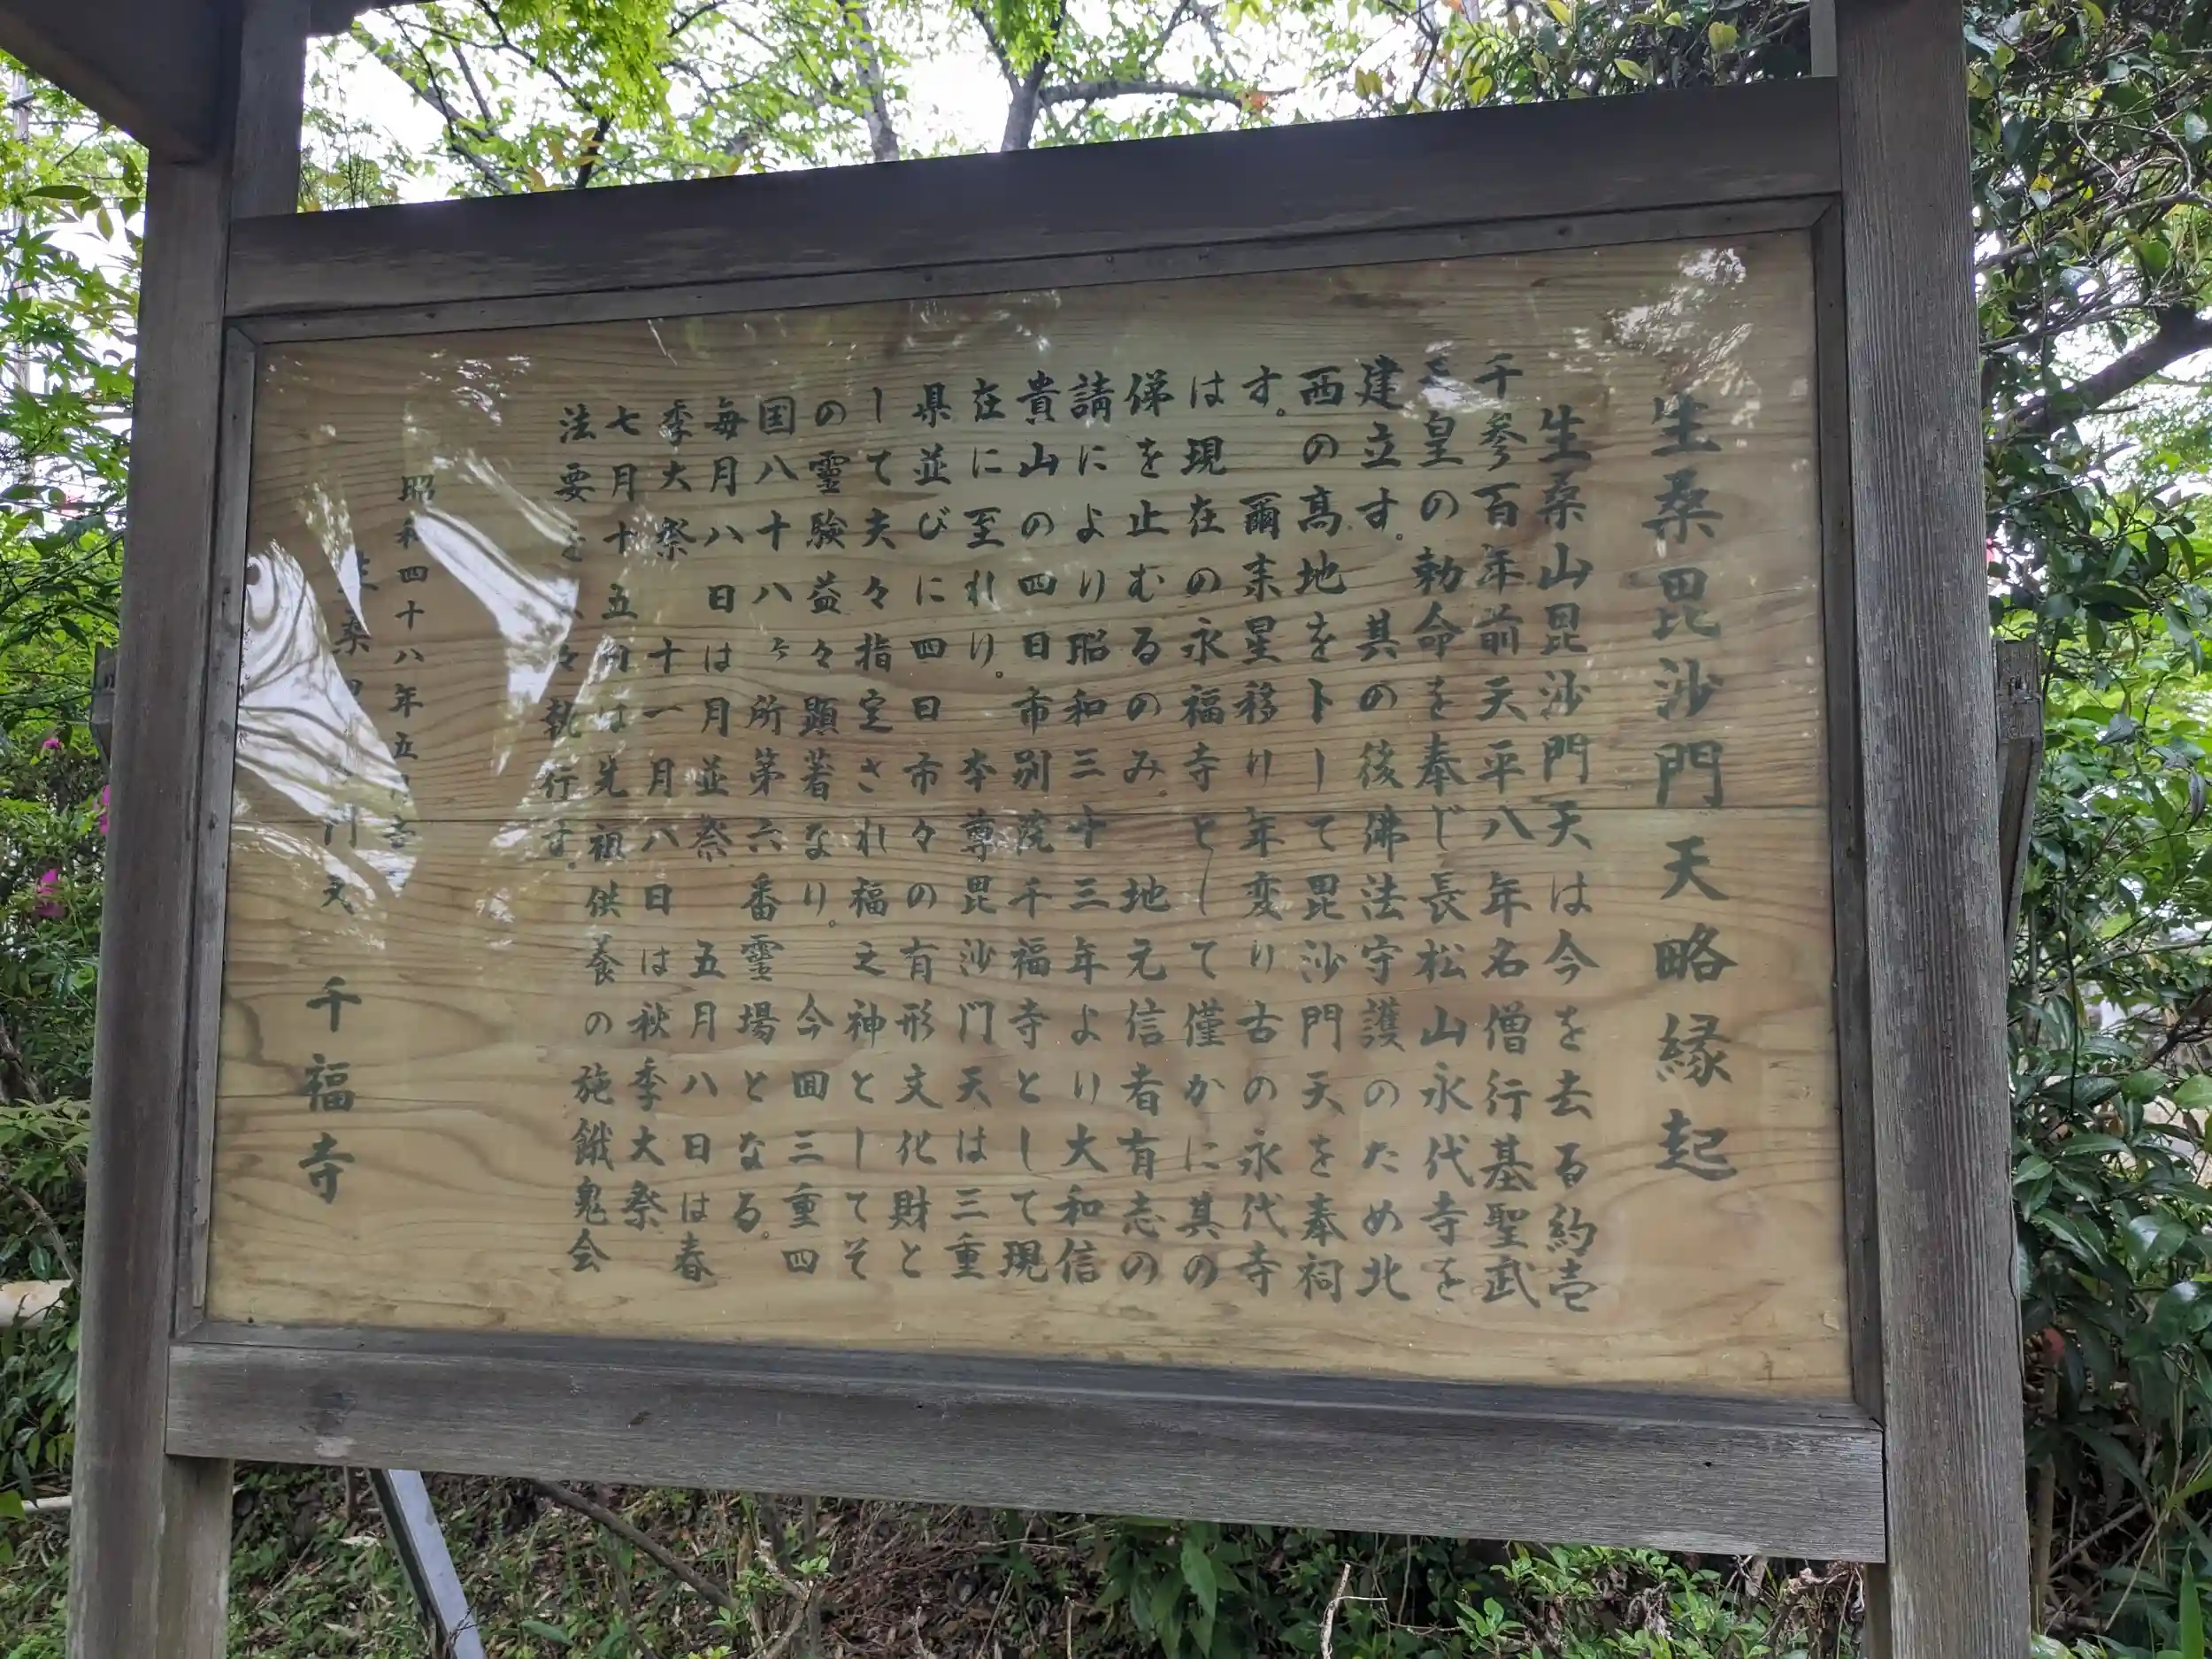 生桑毘沙門天略縁起
生桑山毘沙門天は今を去る約壱
千参百年前天平八年名僧行基聖武
皇の勅命を奉じ長松山永代寺を
建立す。其の後佛法守護のため北
西の高地を卜して毘沙門天を奉祠
す。爾来星移り年変り古の永代寺
は現在の永福寺として僅かに其の
俤を止むるのみ。地元信者有志の
請により昭和三十三年より大和信
貴山の四日市別院千福寺として現
在に至れり。本尊毘沙門天は三重
県並びに四日市々の有形文化財と
して夫々指定され福之神としてそ
の霊験益々顕著なり。今回三重四
国八十八ヶ所第六番霊場となる。
毎月八日は月並祭 五月八日は春
季大祭 十一月八日は秋季大祭
七月十五日は先祖供養の施餓鬼会
法要 々執行す。
昭和四十八年五月吉
桑 門天 千福寺